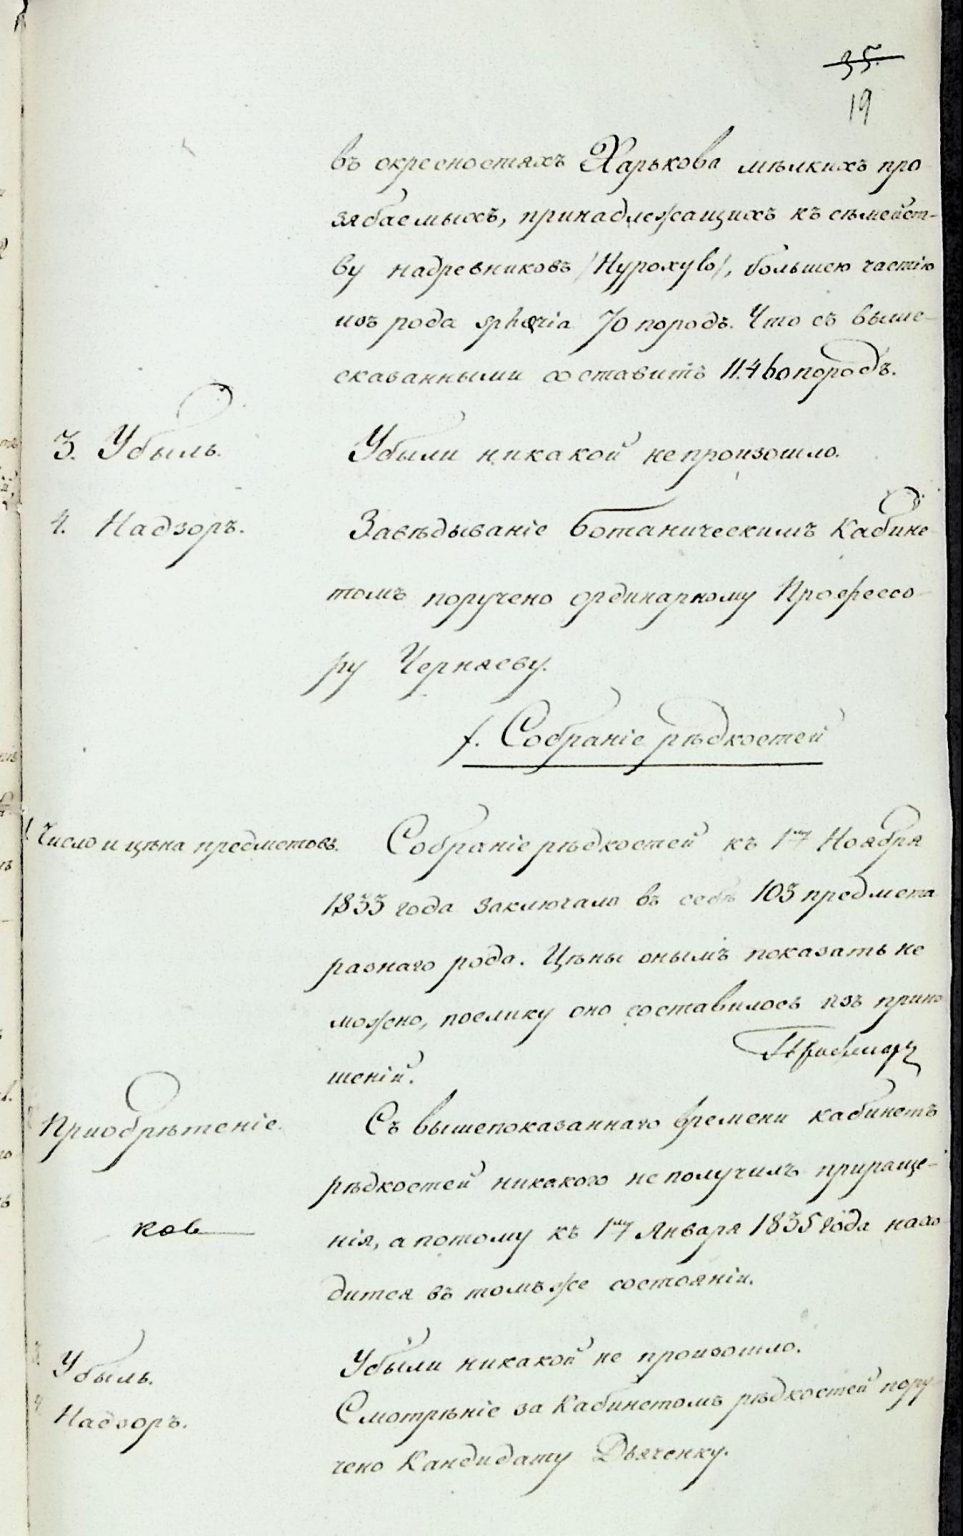 35.
19
въ окресностяхъ Харькова мѣлкихъ про
зябаемыхъ, принадлежащихъ къ сѣмейст-
ву надревниковъ /Hypoxyla/, большею частію
изъ рода sphæria 70 породъ. Что съ выше-
сказанными составитъ 11.460 породъ.
3. Убыль. Убыли никакой не произошло.
4. Надзоръ. Завѣдываніе ботаническимъ Кабине-
томъ поручено ординарному Профессо-
ру Черняеву.
f. Собраніе рѣдкостей
1. Число и цѣна предметовъ. Собраніе рѣдкостей къ 1му Ноября
1833 года заключало въ себѣ 103 предмета
разнаго рода. Цѣны онымъ показать не
можно, поелику оно составилось изъ прино
шеній.
Приобрѣтеніе. Съ вышепоказаннаго времени кабинетъ
рѣдкостей никакого не получилъ прираще-
нія, а потому къ 1му Января 1835 года нахо
дится въ томъ же состояніи.
3. Убыль. Убыли никакой не произошло.
4. Надзоръ. Смотрѣніе за Кабинетомъ рѣдкостей пору-
чено Кандидату Дьяченку.